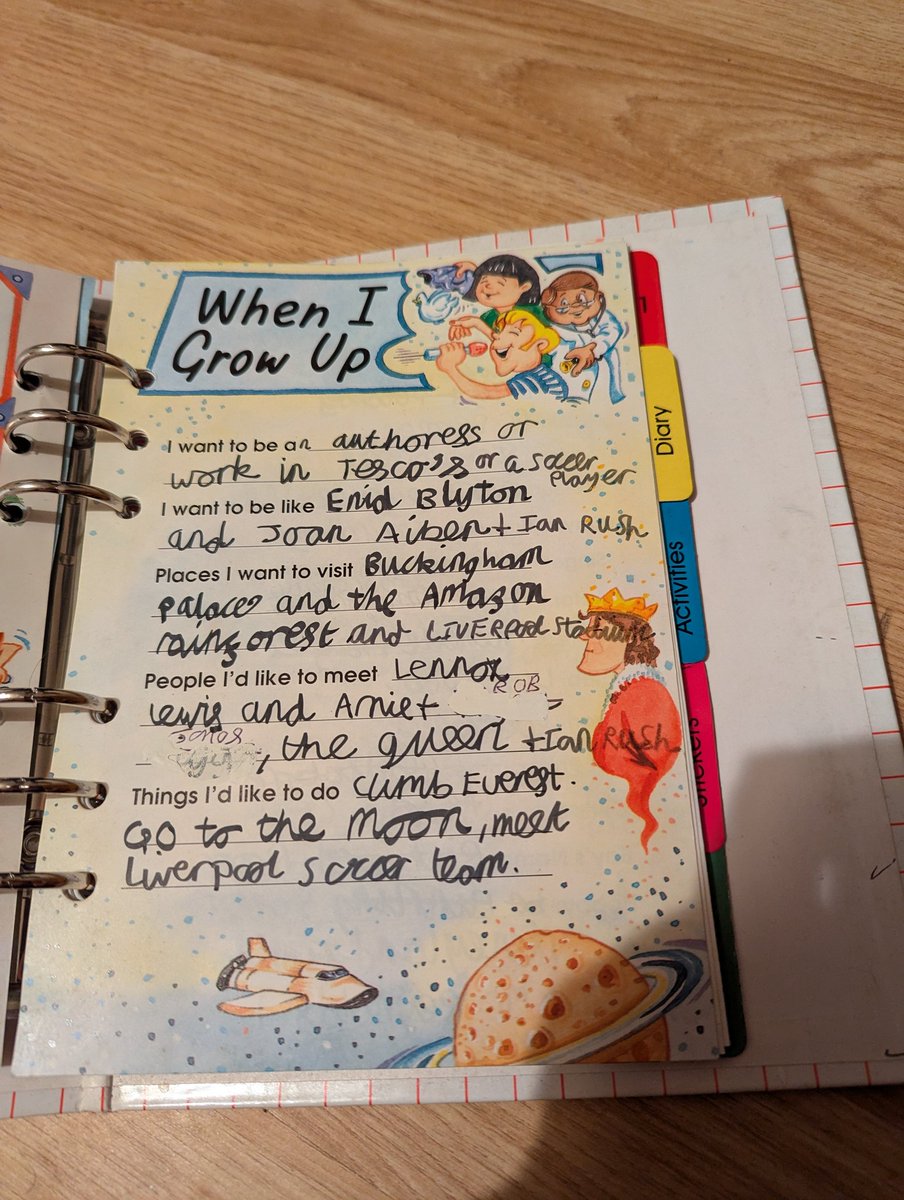 When I
Grow Up
I want to be an authoress or
work in Tesco's or a soccer
player.
I want to be like Enid Blyton
and Joan Aiken + Ian Rush
Places I want to visit Buckingham
palace and the Amazon
rainforest and LIVERPOOL Stadium
People I'd like to meet Lennox
ROB
Lewis and Arnie +
, the queen + Ian Rush
Things I'd like to do climb Everest.
Go to the Moon, meet
Liverpool soccer team.
Diary
Activities
Stickers